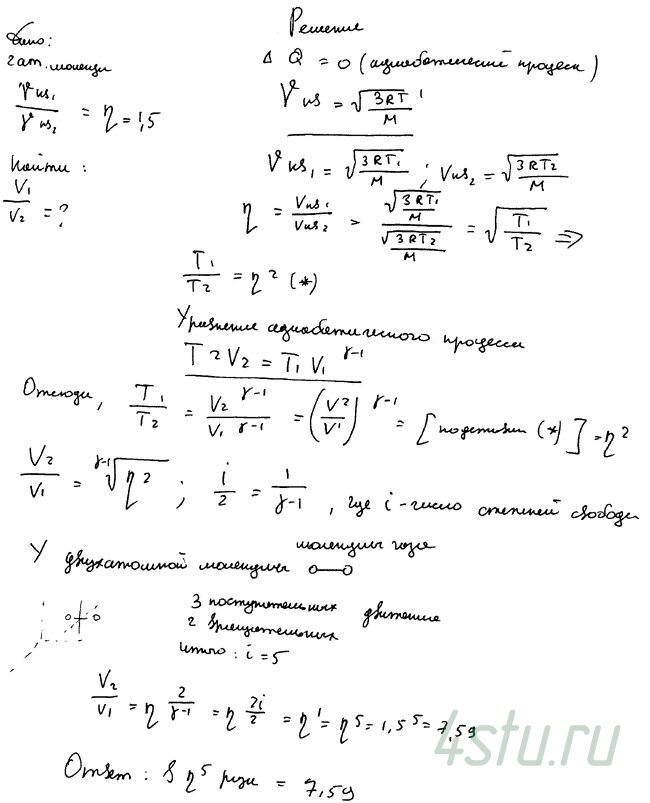 Дано:
2 ат. молекул
Vкв₁ / Vкв₂ = η = 1,5
Найти:
V₁ / V₂ = ?
Решение
Δ Q = 0 (адиабатический процесс)
Vкв = √(3RT / M)
Vкв₁ = √(3RT₁ / M) ; Vкв₂ = √(3RT₂ / M)
η = Vкв₁ / Vкв₂ = √(3RT₁ / M) / √(3RT₂ / M) = √(T₁ / T₂) ⇒
T₁ / T₂ = η² (*)
Уравнение адиабатического процесса
T₂V₂ = T₁V₁^(γ-1)
Отсюда, T₁ / T₂ = V₂^(γ-1) / V₁^(γ-1) = (V₂ / V₁)^(γ-1) = [подставим (*)] = η²
V₂ / V₁ = ^(γ-1)√(η²) ; i / 2 = 1 / (γ-1) , где i - число степеней свободы
молекулы газа
У двухатомной молекулы
3 поступательных движения
2 вращательных
итого : i = 5
V₂ / V₁ = η^(2 / (γ-1)) = η^(2i / 2) = η^i = η⁵ = 1,5⁵ = 7,59
Ответ : В η⁵ раз = 7,59
4stu.ru